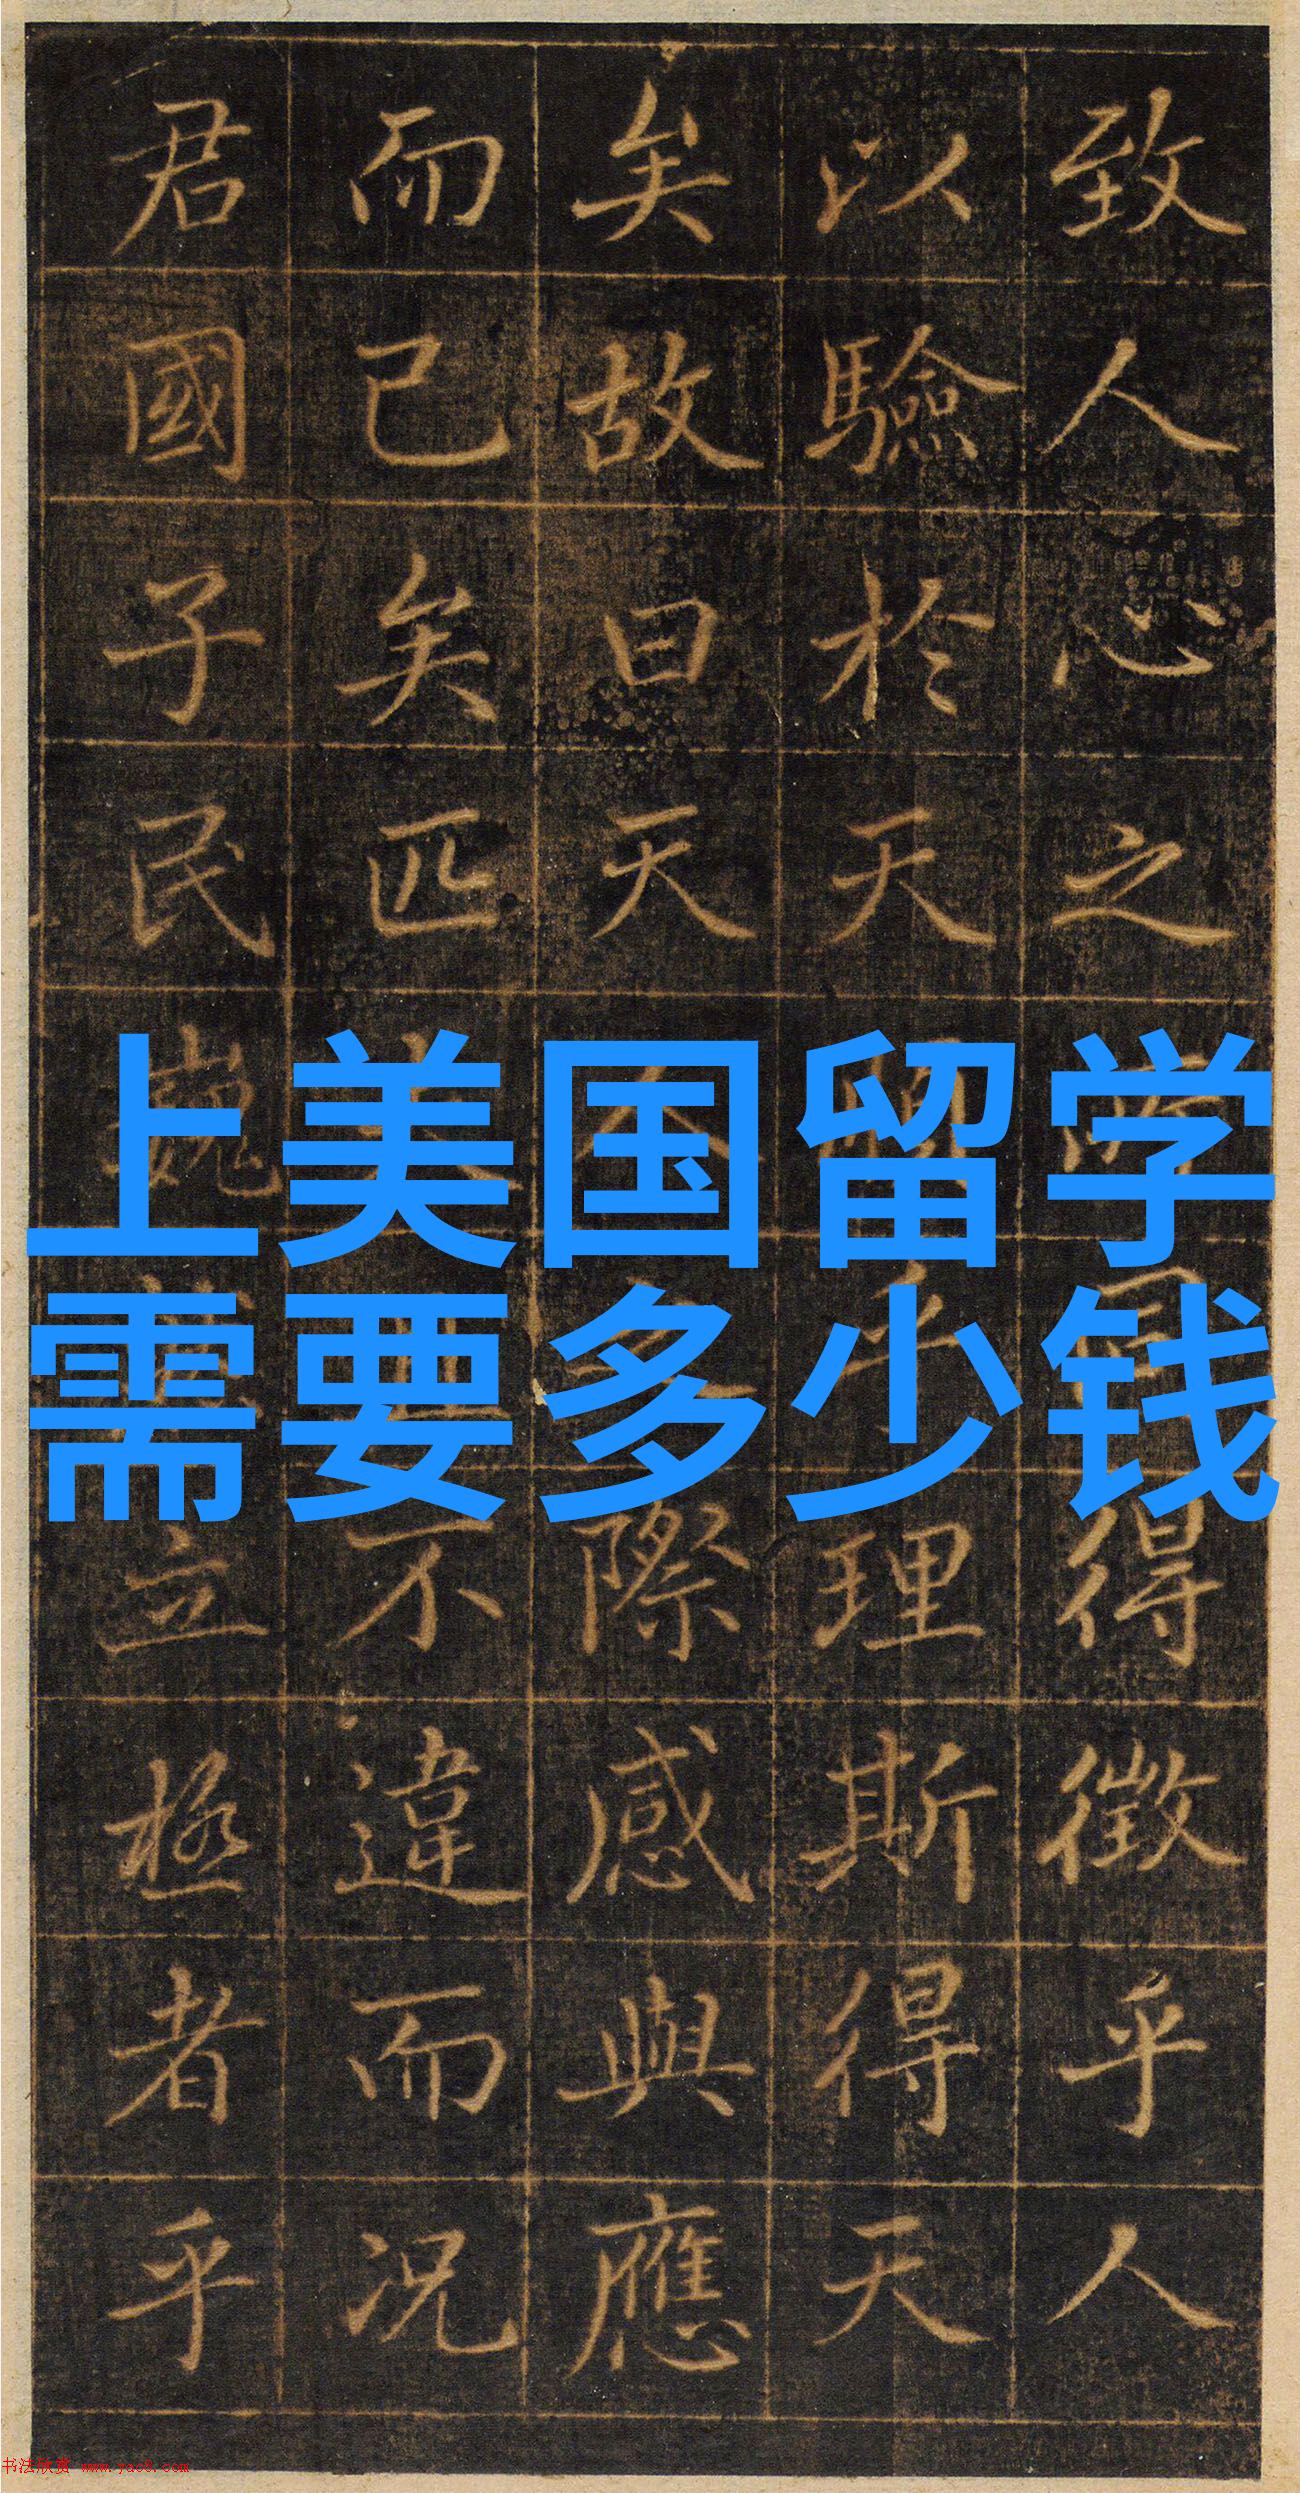 致人心之得徵乎人
以驗於天乎理斯得天
矣故曰天人之際感與應
而已矣匹夫不違而況
君國子民巍立極者乎
上美国留学
需要多少钱
书法欣赏 www.yac8.com